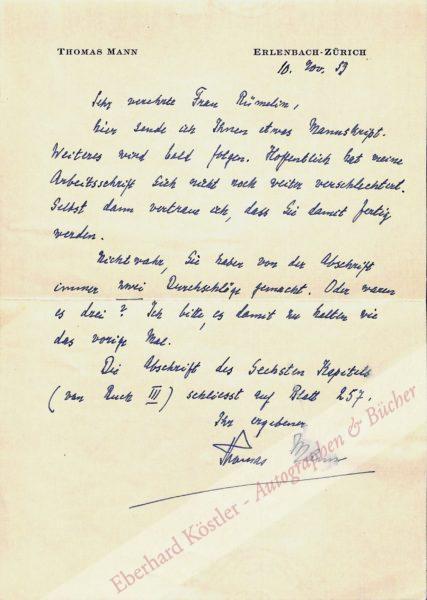 THOMAS MANN
ERLENBACH-ZÜRICH
10. Nov. 53
Sehr verehrte Frau Rümelin,
hier sende ich Ihnen etwas Manuskript.
Weiteres wird bald folgen. Hoffentlich hat meine
Arbeitsschrift sich nicht noch weiter verschlechtert.
Selbst dann vertraue ich, dass Sie damit fertig
werden.
Nicht wahr, Sie haben von der Abschrift
immer zwei Durchschläge gemacht. Oder waren
es drei? Ich bitte, es damit zu halten wie
das vorige Mal.
Die Abschrift des Sechsten Kapitels
(von Buch III) schliesst auf Blatt 257.
Ihr ergebener
Thomas Mann
Eberhard Köstler - Autographen & Bücher